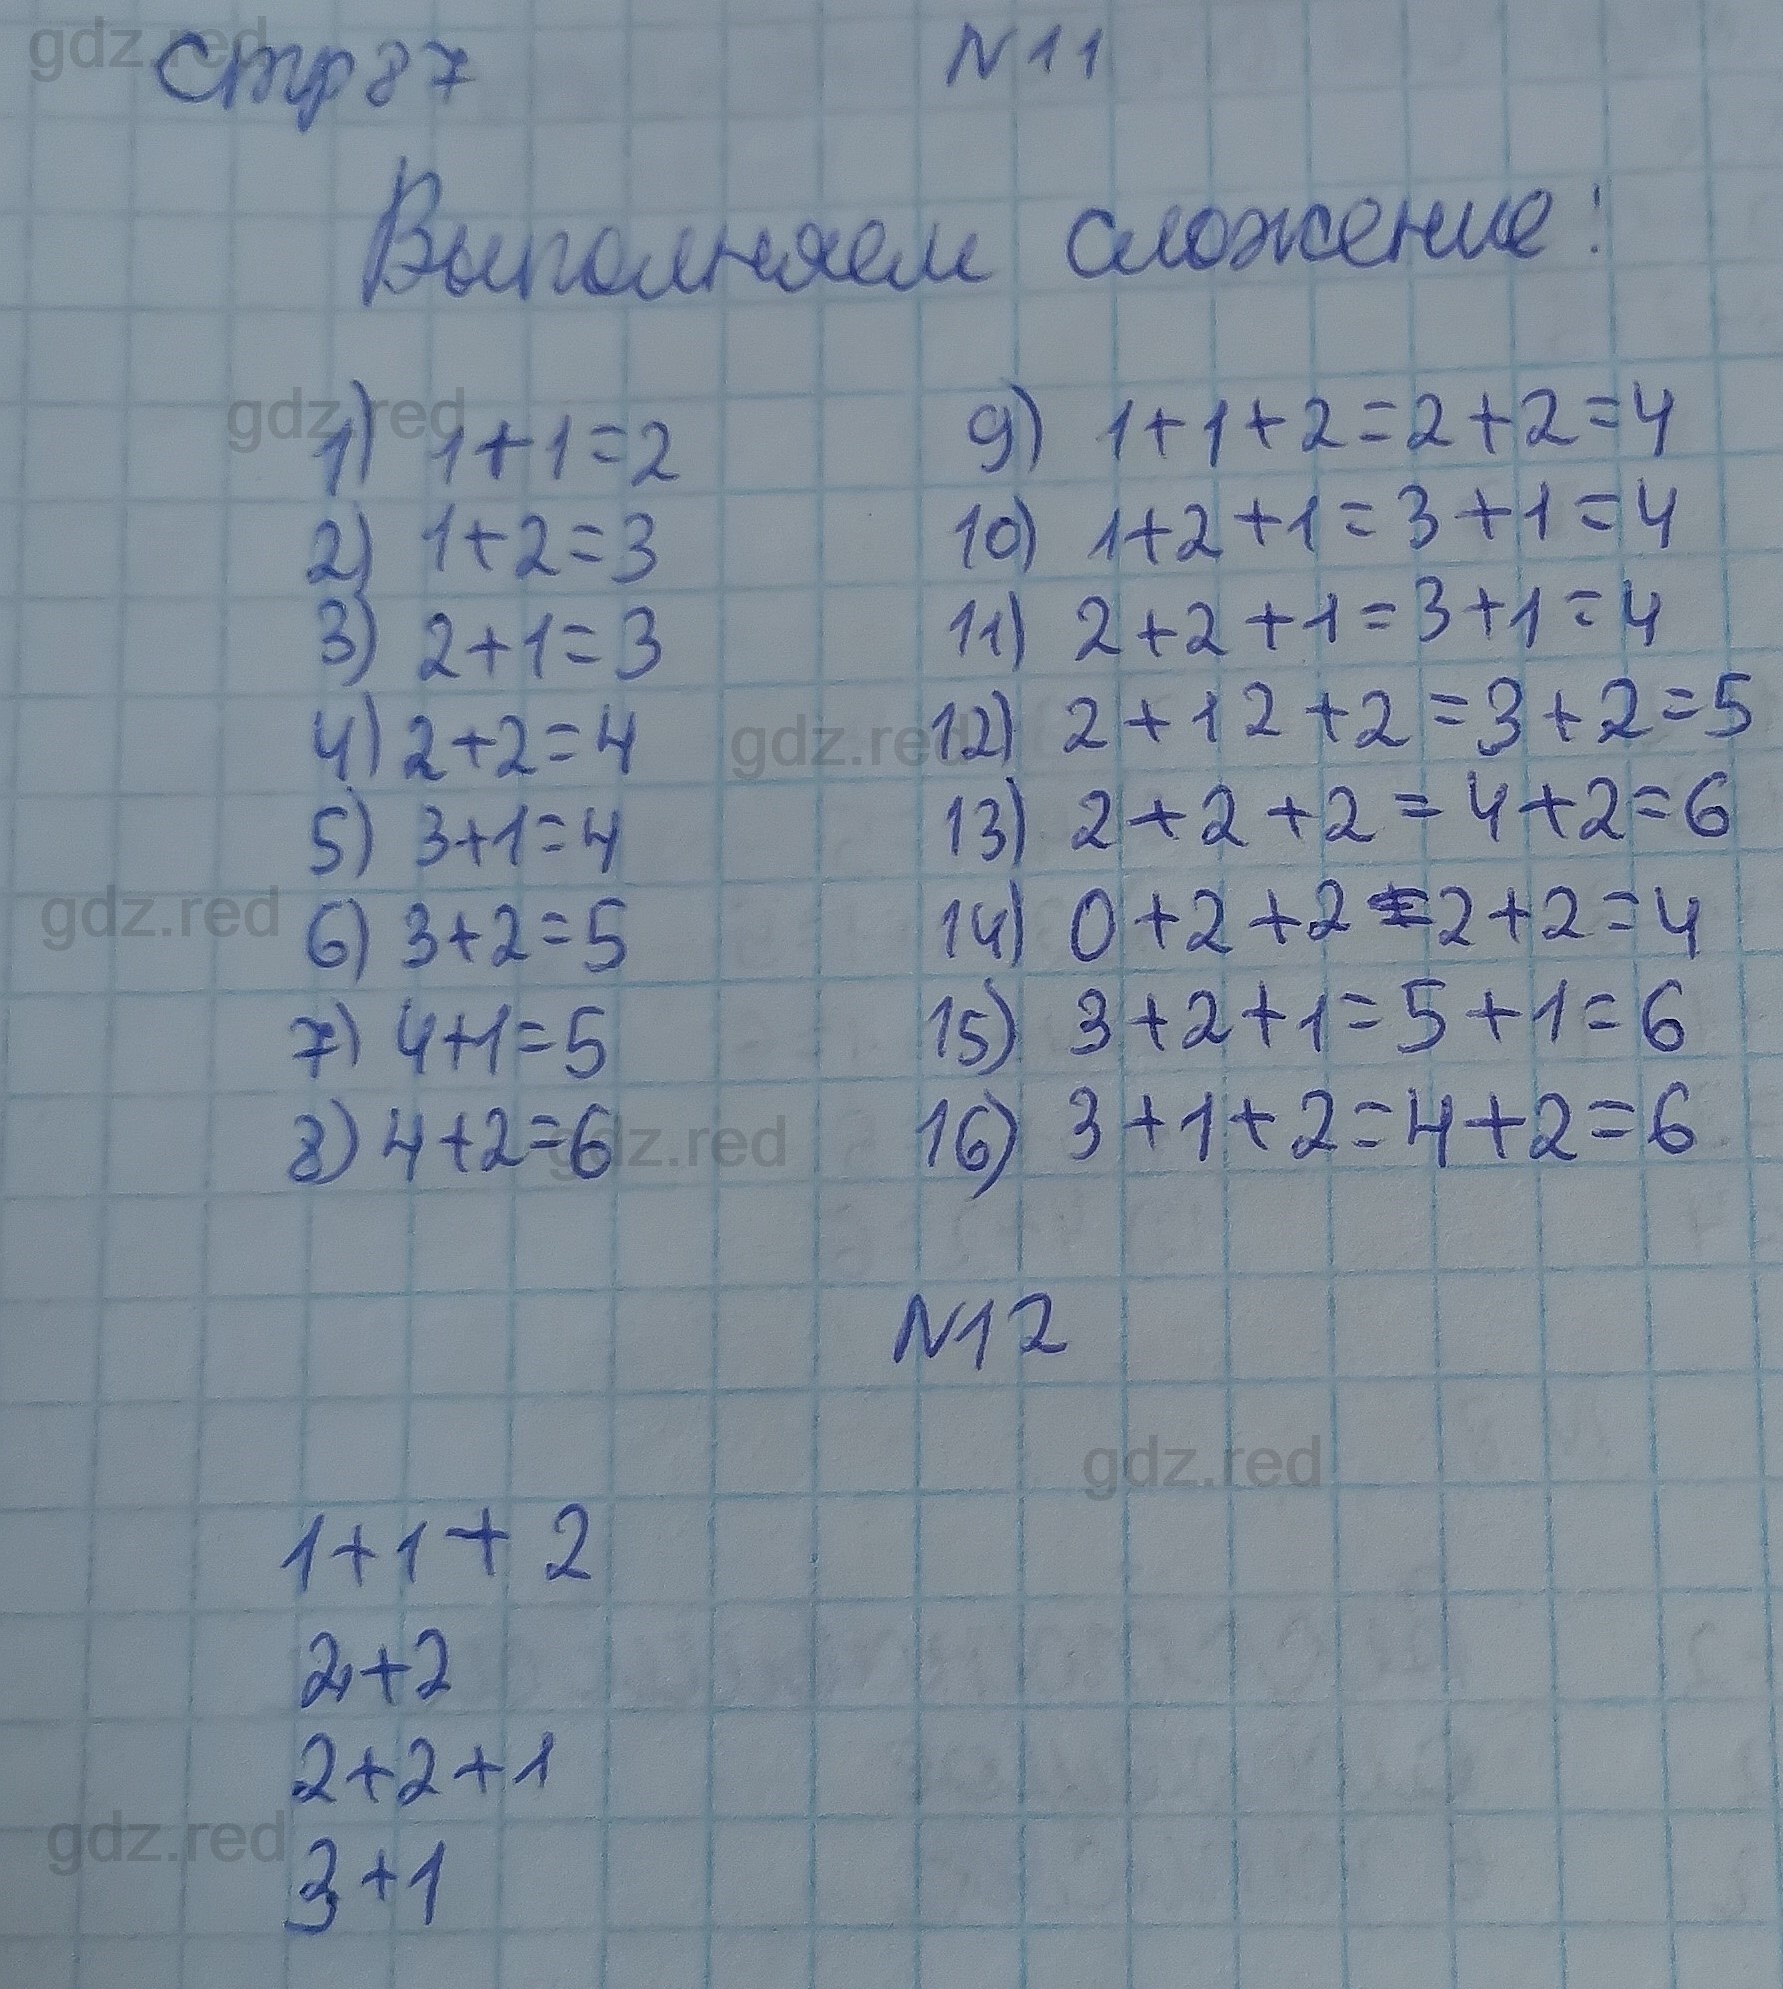 Стр 87 N 11
Выполняем сложение:
1) 1+1=2
2) 1+2=3
3) 2+1=3
4) 2+2=4
5) 3+1=4
6) 3+2=5
7) 4+1=5
8) 4+2=6
9) 1+1+2=2+2=4
10) 1+2+1=3+1=4
11) 2+2+1=3+1=4
12) 2+12+2=3+2=5
13) 2+2+2=4+2=6
14) 0+2+2=2+2=4
15) 3+2+1=5+1=6
16) 3+1+2=4+2=6
N12
1+1+2
2+2
2+2+1
3+1
gdz.red
gdz.red
gdz.red
gdz.red
gdz.red
gdz.red
gdz.red